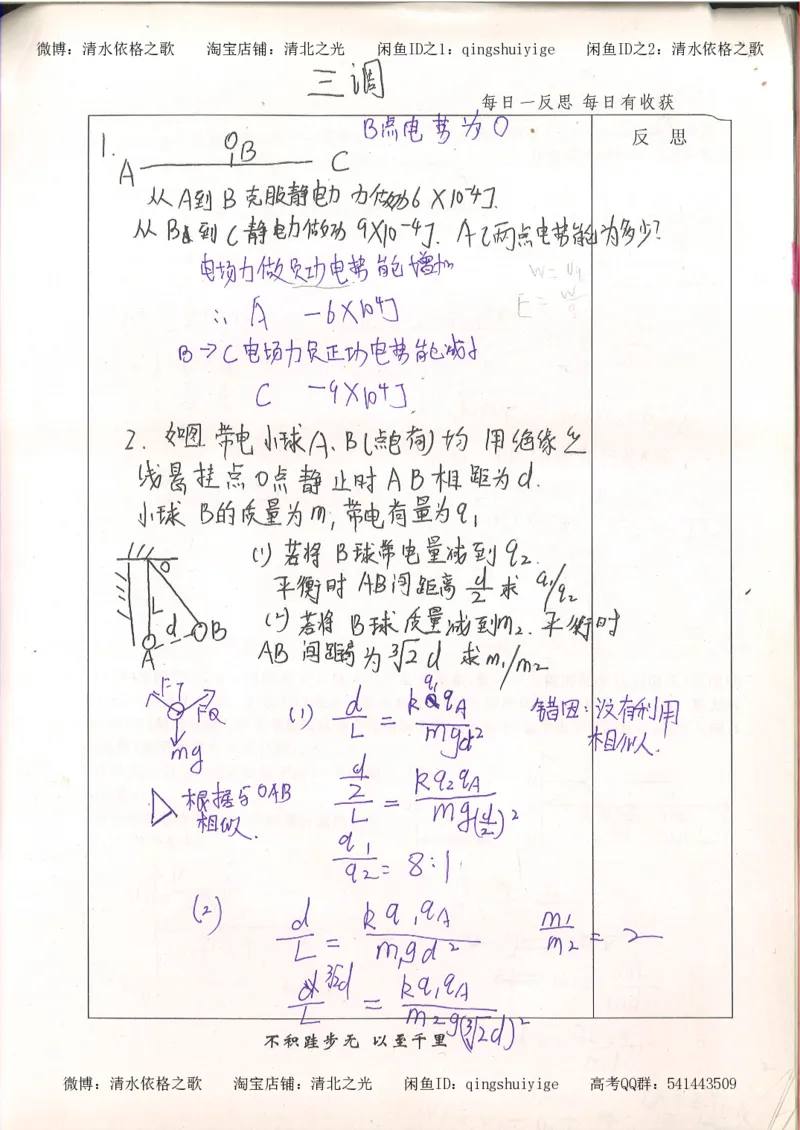 微博：清水依格之歌 淘宝店铺：清北之光 闲鱼ID之1：qingshuiyige 闲鱼ID之2：清水依格之歌
三调
每日一反思 每日有收获
B点电势为0
反 思
1.
A B C
从A到B克服静电力力做功6×10⁻⁴J.
从B到C静电力做功9×10⁻⁴J. AC两点电势能为多少?
电场力做负功电势能增加
W=Uq
E=W/q
∴ A -6×10⁴J
B→C电场力负正功电势能减少
C -9×10⁴J
2. 如图.带电小球A、B(点电荷)均用绝缘丝
线悬挂点O点静止时AB相距为d.
小球B的质量为m,带电荷量为q₁
(1)若将B球带电量减到q₂.
平衡时AB间距离d/2求q₁/q₂
(2)若将B球质量减到m₂.平衡时
AB间距离为∛2d 求m₁/m₂
O
L
d
B
A
FT
FQ
mg
(1) d/L = kq₁q_A/mgd²
错因:没有利用
相似.
(d/2)/L = kq₂q_A/mg(d/2)²
根据与OAB
相似.
q₁/q₂ = 8:1
(2) d/L = kq₁q_A/m₁gd²
m₁/m₂ = 2
∛2d/L = kq₁q_A/m₂g(∛2d)²
不积跬步无 以至千里
微博：清水依格之歌 淘宝店铺：清北之光 闲鱼ID：qingshuiyige 高考QQ群：541443509